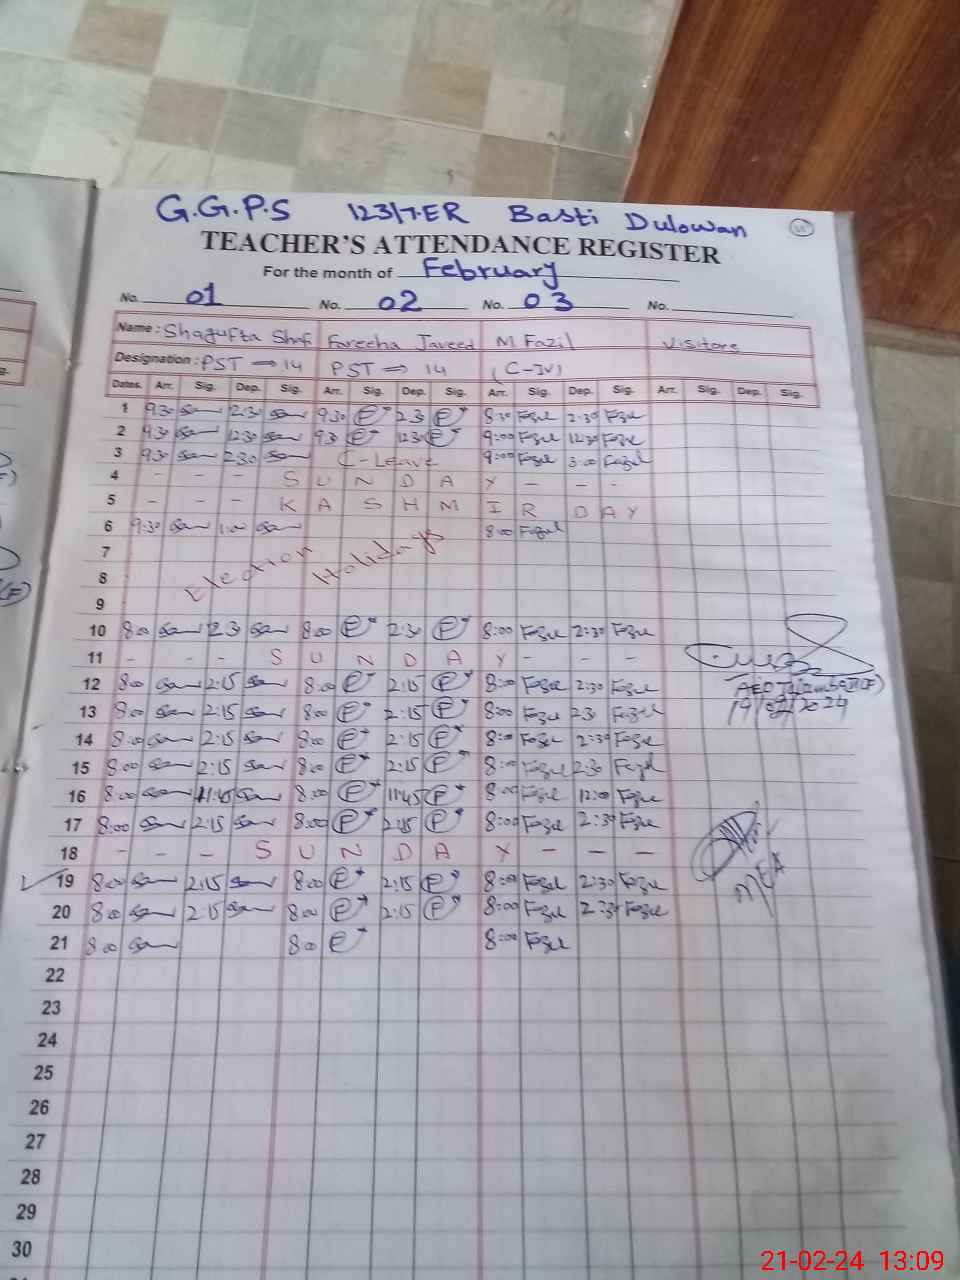 G.G.P.S 123/7.ER Basti Dulowan
TEACHER'S ATTENDANCE REGISTER
For the month of February
No. 01 No. 02 No. 03 No.
Name: Shagufta Shrf Fareeha Javeed M Fazil Visitors
Designation: PST → 14 PST ⇒ 14 (C-IV)
Dates. Arr. Sig. Dep. Sig. Arr. Sig. Dep. Sig. Arr. Sig. Dep. Sig. Arr. Sig. Dep. Sig.
1 9:30 2:30 9:30 2:30 8:30 Fazil 2:30 Fazil
2 9:30 12:30 9:30 12:30 9:00 Fazil 12:30 Fazil
3 9:30 2:30 C-Leave 9:00 Fazil 3:00 Fazil
4 - - - S U N D A Y - - -
5 - - - K A S H M I R D A Y
6 9:30 1:00 8:00 Fazil
7 Election Holidays
8
9
10 8:00 2:30 8:00 2:30 8:00 Fazil 2:30 Fazil
11 - - - S U N D A Y - - -
12 8:00 2:15 8:00 2:15 8:00 Fazil 2:30 Fazil
13 8:00 2:15 8:00 2:15 8:00 Fazil 2:30 Fazil
14 8:00 2:15 8:00 2:15 8:00 Fazil 2:30 Fazil
15 8:00 2:15 8:00 2:15 8:00 Fazil 2:30 Fazil
16 8:00 11:45 8:00 11:45 8:00 Fazil 12:00 Fazil
17 8:00 2:15 8:00 2:15 8:00 Fazil 2:30 Fazil
18 - - - S U N D A Y - - -
19 8:00 2:15 8:00 2:15 8:00 Fazil 2:30 Fazil
20 8:00 2:15 8:00 2:15 8:00 Fazil 2:30 Fazil
21 8:00 8:00 8:00 Fazil
22
23
24
25
26
27
28
29
30
AEO
19/02/2024
MEA
21-02-24 13:09